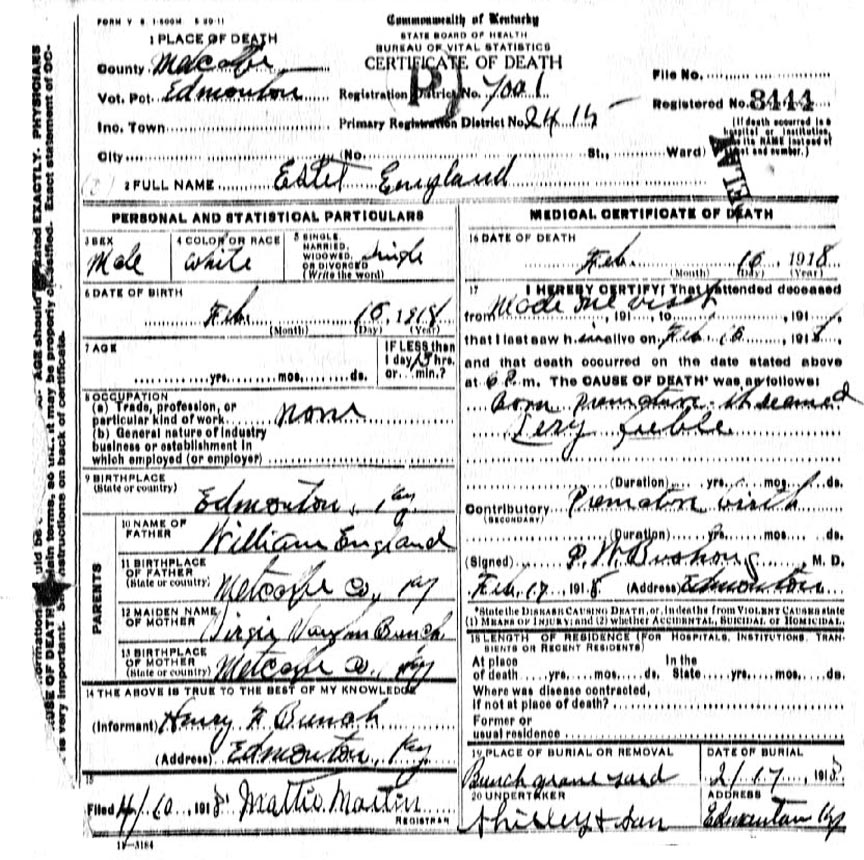 FORM V S 1-500M 5 20-11
Commonwealth of Kentucky
STATE BOARD OF HEALTH
BUREAU OF VITAL STATISTICS
CERTIFICATE OF DEATH
1 PLACE OF DEATH
County Metcalfe
Vot. Pct. Edmonton
Inc. Town
City (No. St., Ward)
Registration District No. 7001
Primary Registration District No. 2415
File No.
Registered No. 3444
(If death occurred in a hospital or institution, its NAME instead of and number.)
2 FULL NAME Estel England
PERSONAL AND STATISTICAL PARTICULARS
3 SEX Male
4 COLOR OR RACE White
5 SINGLE, MARRIED, WIDOWED, OR DIVORCED (Write the word) Single
6 DATE OF BIRTH
Feb. 10, 1918
(Month) (Day) (Year)
7 AGE
yrs. mos. ds.
IF LESS than 1 day, hrs. or min.?
8 OCCUPATION
(a) Trade, profession, or particular kind of work none
(b) General nature of industry
business or establishment in
which employed (or employer)
9 BIRTHPLACE
(State or country) Edmonton, Ky
PARENTS
10 NAME OF FATHER William England
11 BIRTHPLACE OF FATHER (State or country) Metcalfe Co, Ky
12 MAIDEN NAME OF MOTHER Virgie Bunch
13 BIRTHPLACE OF MOTHER (State or country) Metcalfe Co., Ky
14 THE ABOVE IS TRUE TO THE BEST OF MY KNOWLEDGE
(Informant) Henry F Bunch
(Address) Edmonton, Ky
15
Filed 4/10, 1918 Mattie Martin
REGISTRAR
11-3184
MEDICAL CERTIFICATE OF DEATH
16 DATE OF DEATH
Feb. 10, 1918
(Month) (Day) (Year)
17 I HEREBY CERTIFY, That I attended deceased
Made one visit
from , 191 , to , 191 ,
that I last saw him alive on Feb 10, 1918,
and that death occurred on the date stated above
at 6 P. m. The CAUSE OF DEATH* was as follows:
Born premature it seemed
very feeble
(Duration) yrs. mos. ds.
Contributory Premature birth
(SECONDARY)
(Duration) yrs. mos. ds.
(Signed) P. W. Bushong, M. D.
Feb, 17, 1918 (Address) Edmonton
*State the DISEASE CAUSING DEATH, or, in deaths from VIOLENT CAUSES state
(1) MEANS OF INJURY; and (2) whether ACCIDENTAL, SUICIDAL or HOMICIDAL.
18 LENGTH OF RESIDENCE (FOR HOSPITALS, INSTITUTIONS, TRANSIENTS OR RECENT RESIDENTS)
At place of death yrs. mos. ds. In the State yrs. mos. ds.
Where was disease contracted,
If not at place of death?
Former or
usual residence
19 PLACE OF BURIAL OR REMOVAL
Bunch grave yard
DATE OF BURIAL
2/17, 1918
20 UNDERTAKER
Shirley & Son
ADDRESS
Edmonton Ky